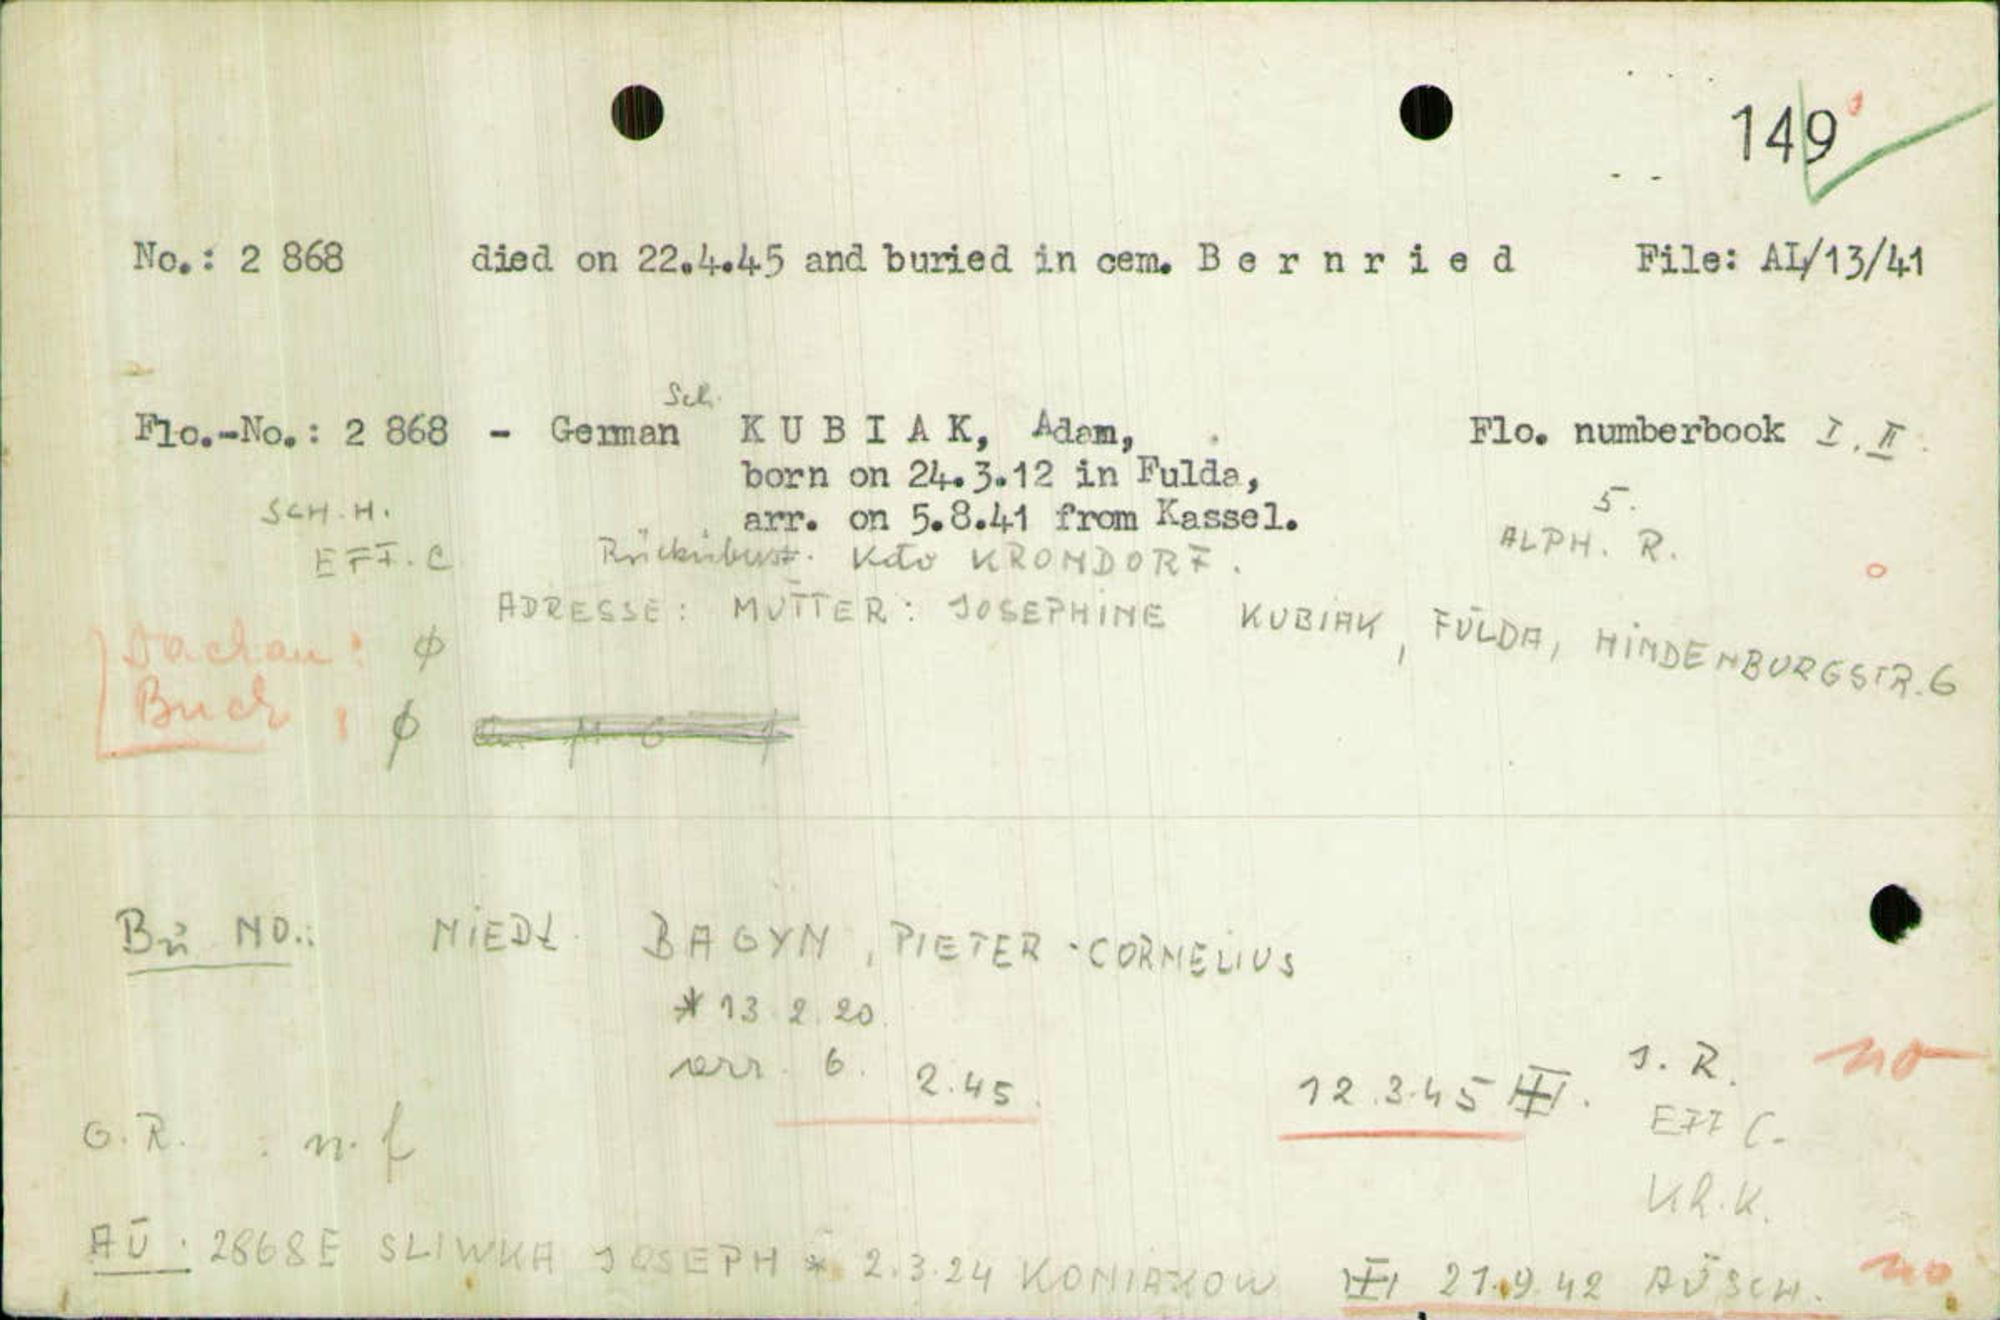 149
No.: 2 868 died on 22.4.45 and buried in cem. B e r n r i e d File: AL/13/41
Sch.
Flo.-No.: 2 868 - German K U B I A K, Adam, Flo. numberbook I. II.
born on 24.3.12 in Fulda,
SCH.H. arr. on 5.8.41 from Kassel. 5.
EFF. C Kdo KRONDORF. ALPH. R.
ADRESSE: MUTTER: JOSEPHINE KUBIAK, FULDA, HINDENBURGSTR. 6
Dachau: ø
Buch, ø
Bü NO.: NIEDL. BAGYN, PIETER-CORNELIUS
* 13.2.20.
arr. 6. 2.45. 12.3.45 J. R. no
G. R. : n. f EFF C.
Kh. K.
AU. 2868E SLIWKA JOSEPH * 2.3.24 KONIAKOW 21.9.42 AUSCH. no